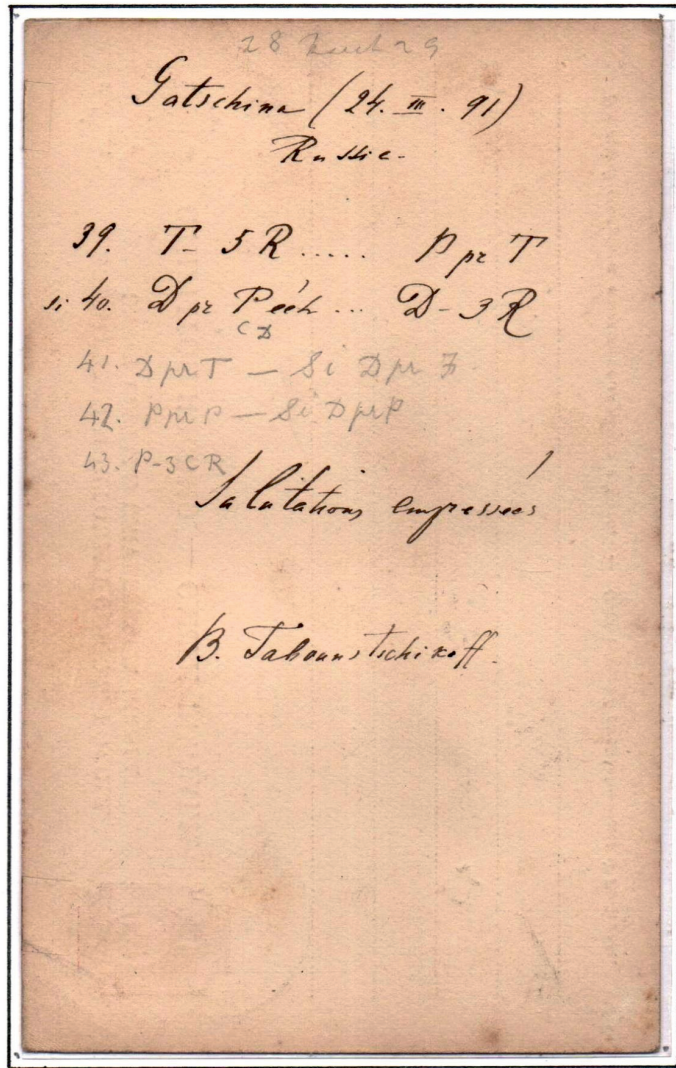 28
Gatschina (24. III. 91)
Russie.
39. T - 5 R ..... P pr T
si 40. D pr P éch ... D - 3 R
CD
41. D pr T — Si D pr
42. P pr P — Si D pr P
43. P - 3 C R
Salutations empressées
B. Tabounstchikoff.